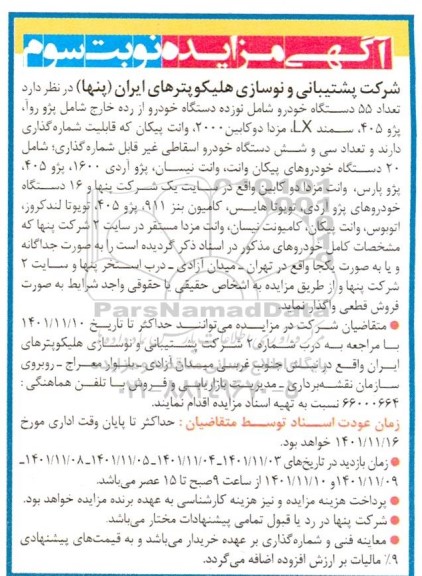 آگهی مزایده نوبت سوم
شرکت پشتیبانی و نوسازی هلیکوپترهای ایران (پنها) در نظر دارد
تعداد ۵۵ دستگاه خودرو شامل نوزده دستگاه خودرو از رده خارج شامل پژو روآ،
پژو ۴۰۵، سمند LX، مزدا دوکابین۲۰۰۰، وانت پیکان که قابلیت شماره‌گذاری
دارند و تعداد سی و شش دستگاه خودرو اسقاطی غیر قابل شماره‌گذاری؛ شامل
۲۰ دستگاه خودروهای پیکان وانت، وانت نیسان، پژو آردی ۱۶۰۰، پژو ۴۰۵،
پژو پارس، وانت مزدا دو کابین واقع در سایت یک شرکت پنها و ۱۶ دستگاه
خودروهای پژو آردی، تویوتا هایس، کامیون بنز ۹۱۱، پژو ۴۰۵، تویوتا لندکروز،
اتوبوس، وانت پیکان، کامیونت نیسان، وانت مزدا مستقر در سایت ۲ شرکت پنها که
مشخصات کامل خودروهای مذکور در اسناد ذکر گردیده است را به صورت جداگانه
و یا به صورت یکجا واقع در تهران ـ میدان آزادی ـ درب استخر پنها و سایت ۲
شرکت پنها و از طریق مزایده به اشخاص حقیقی یا حقوقی واجد شرایط به صورت
فروش قطعی واگذار نماید.
ParsNamadData
● متقاضیان شرکت در مزایده می‌توانند حداکثر تا تاریخ ۱۴۰۱/۱۱/۱۰
با مراجعه به درب شماره ۲ شرکت پشتیبانی و نوسازی هلیکوپترهای
ایران واقع در نبش جنوب غربی میدان آزادی ـ بلوار معراج ـ روبروی
سازمان نقشه‌برداری ـ مدیریت بازاریابی و فروش یا تلفن هماهنگی :
۶۶۰۰۰۶۶۴ نسبت به تهیه اسناد مزایده اقدام نمایند.
زمان عودت اسناد توسط متقاضیان : حداکثر تا پایان وقت اداری مورخ
۱۴۰۱/۱۱/۱۶ خواهد بود.
● زمان بازدید در تاریخ‌های ۱۴۰۱/۱۱/۰۳ـ۱۴۰۱/۱۱/۰۴ـ۱۴۰۱/۱۱/۰۵ـ۱۴۰۱/۱۱/۰۸ـ
۱۴۰۱/۱۱/۰۹ و ۱۴۰۱/۱۱/۱۰ از ساعت ۹صبح تا ۱۵ عصر می‌باشد.
● پرداخت هزینه مزایده و نیز هزینه کارشناسی به عهده برنده مزایده خواهد بود.
● شرکت پنها در رد یا قبول تمامی پیشنهادات مختار می‌باشد.
● معاینه فنی و شماره‌گذاری بر عهده خریدار می‌باشد و به قیمت‌های پیشنهادی
۹٪ مالیات بر ارزش افزوده اضافه می‌گردد.